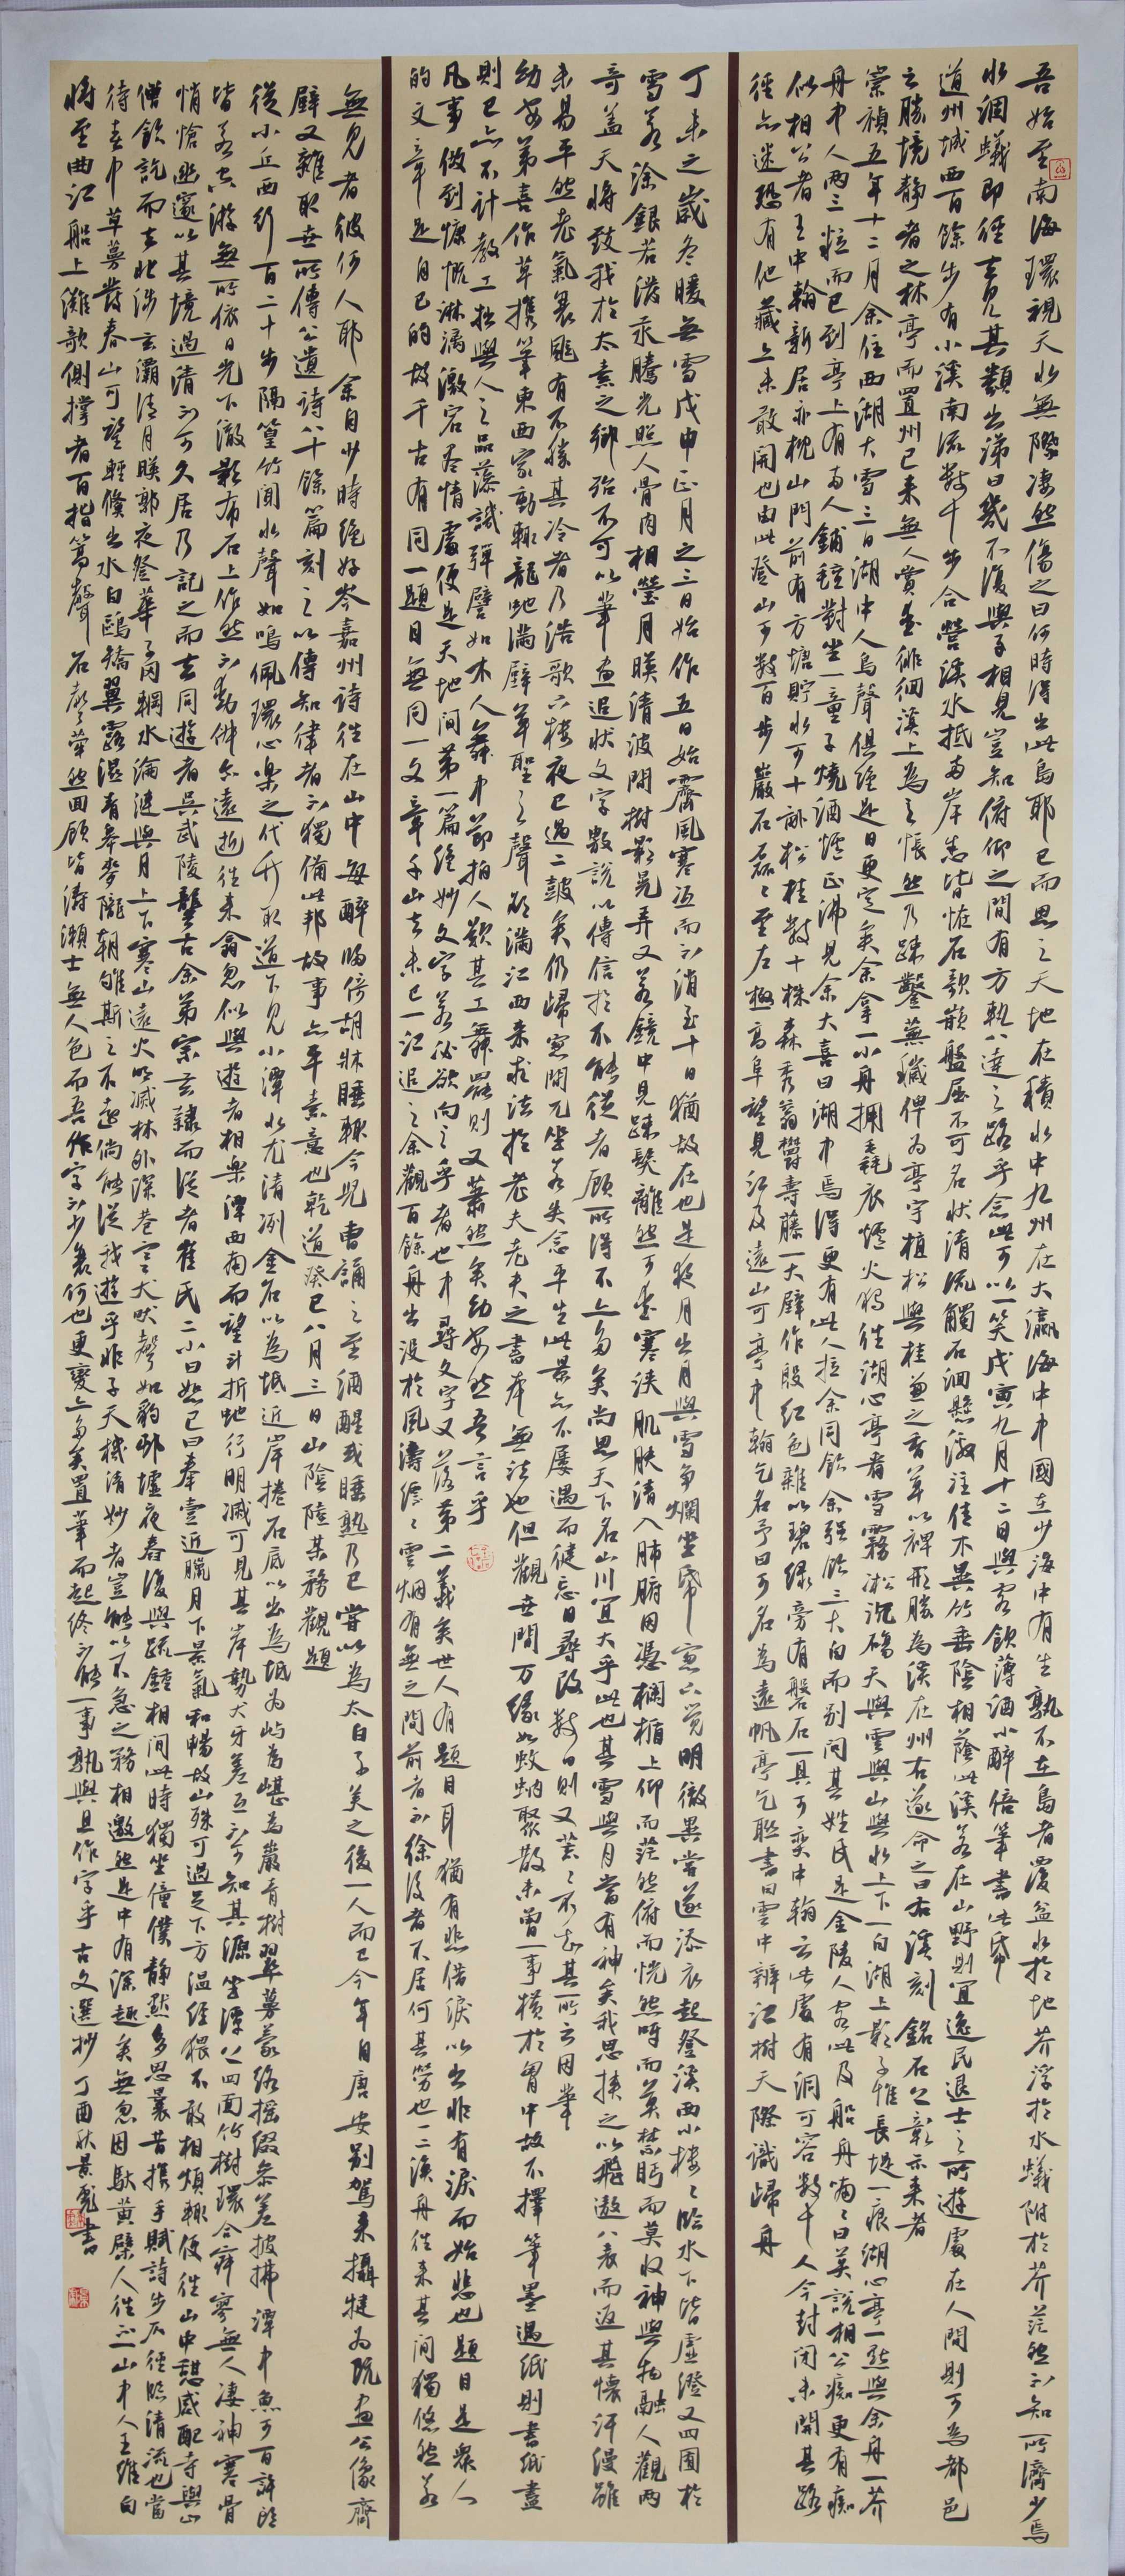 吾始至南海環視天水無際淒然傷之曰何時得出此島耶已而思之天地在積水中九州在大瀛海中中國在少海中有生孰不在島者覆盆水於地芥浮於水蟻附於芥茫然不知所濟少焉
水涸蟻即徑去見其類出涕曰幾不復與子相見豈知俯仰之間有方軌八達之路乎念此可以一笑戊寅九月十二日與客飲薄酒小醉信筆書此紙
道州城西百餘步有小溪南流數十步合營溪水抵兩岸悉皆怪石欹嵌盤屈不可名狀清流觸石洄懸激注佳木異竹垂陰相蔭此溪若在山野則宜逸民退士之所遊處在人間則可為都邑
之勝境靜者之林亭而置州已來無人賞愛徘徊溪上為之悵然乃疏鑿蕪穢俾為亭宇植松與桂兼之香草以裨形勝為溪在州右遂命之曰右溪刻銘石上彰示來者
崇禎五年十二月余住西湖大雪三日湖中人鳥聲俱絕是日更定矣余拿一小舟擁毳衣爐火獨往湖心亭看雪霧凇沆碭天與雲與山與水上下一白湖上影子惟長堤一痕湖心亭一點與余舟一芥
舟中人兩三粒而已到亭上有兩人鋪氈對坐一童子燒酒爐正沸見余大喜曰湖中焉得更有此人拉余同飲余強飲三大白而別問其姓氏是金陵人客此及船舟喃喃曰莫說相公癡更有癡
似相公者王中翰新居亦枕山門前有方塘貯水可十畝松桂數十株森秀蓊鬱壽藤一大壁作殷紅色雜以碧綠旁有磐石一具可奕中翰云此處有洞可容數千人今封閉未開其路
徑亦迷恐有他藏亦未敢開也由此登山可數百步巖石磊磊至左極高阜望見江及遠山可亭中翰乞名予曰可名為遠帆亭乞聯書曰雲中辨江樹天際識歸舟
丁未之歲冬暖無雪戊申正月之三日始作五日始霽風寒冱而不消至十日猶故在也是夜月出月與雪爭爛坐紙窗下覺明徹異嘗遂添衣起登溪西小樓樓臨水下皆虛澄又四圍於
雪若塗銀若潑汞騰光照人骨肉相瑩月映清波間樹影晃弄又若鏡中見疏髮離然可愛寒浹肌膚清入肺腑因憑欄楯上仰而茫然俯而恍然呀而莫禁眄而莫收神與物融人觀兩
奇蓋天將致我於太素之鄉殆不可以筆畫追狀文字敷說以傳信於不能從者顧所得不亦多矣尚思天下名山川宜大乎此也其雪與月當有神矣我思挾之以飛遨八表而返其懷汗縵雖
未易平然老氣暴颸有不勝其冷者乃浩歌下樓夜已過二鼓矣仍歸窗間兀坐若失念平生此景亦不屢遇而健忘日尋改數日則又荒荒不知其所云因筆
幼安弟喜作草攜筆東西家動輒龍蛇滿壁草聖之聲欲滿江西來求法於老夫老夫之書本無法也但觀世間万緣如蚊蚋聚散未嘗一事橫於胸中故不擇筆墨遇紙則書紙盡
則已亦不計較工拙與人之品藻譏彈譬如木人舞中節拍人歎其工舞罷則又蕭然矣幼安然吾言乎
凡事做到慷慨淋漓激宕盡情處便是天地間第一篇絕妙文字若必欲向之乎者也中尋文字又落第二義矣世人有題目耳猶有悲借淚以出非有淚而始悲也題目是眾人
的文章是自己的故千古有同一題目無同一文章千山去未已一江追之余觀百餘舟出沒於風濤縹緲雲烟有無之間前者不徐後者不居何其勞也一二漁舟往來其間獨悠然若
無見者彼何人耶余自少時絕好岑嘉州詩往在山中每醉歸倚胡床睡輒令兒曹誦之至酒醒或睡熟乃已嘗以為太白子美之後一人而已今年自唐安別駕來攝犍為既畫公像齋
壁又雜取世所傳公遺詩八十餘篇刻之以傳知律者不獨備此邦故事亦平素意也乾道癸巳八月三日山陰陸某務觀題
從小丘西行百二十步隔篁竹聞水聲如鳴佩環心樂之伐竹取道下見小潭水尤清冽全石以為底近岸捲石底以出為坻為嶼為嵁為巖青樹翠蔓蒙絡搖綴參差披拂潭中魚可百許頭
皆若空游無所依日光下澈影布石上佁然不動俶爾遠逝往來翕忽似與遊者相樂潭西南而望斗折蛇行明滅可見其岸勢犬牙差互不可知其源坐潭上四面竹樹環合寂寥無人淒神寒骨
悄愴幽邃以其境過清不可久居乃記之而去同遊者吳武陵龔古余弟宗玄隸而從者崔氏二小曰恕己曰奉壹近臘月下景氣和暢故山殊可過足下方溫經猥不敢相煩輒便往山中憩感配寺與山
僧飯訖而去北涉玄灞清月映郭夜登華子岡輞水淪漣與月上下寒山遠火明滅林外深巷寒犬吠聲如豹邨墟夜舂復與疏鐘相間此時獨坐僮僕靜默多思曩昔攜手賦詩步仄徑臨清流也當
待春中草蔓發春山可望輕鯈出水白鷗矯翼露濕青皋麥隴朝雊斯之不遠倘能從我遊乎非子天機清妙者豈能以不急之務相邀然是中有深趣矣無忽因馱黃檗人往不一山中人王維白
將至曲江船上灘欹側撐者百指篙聲石聲犖然回顧皆濤瀨士無人色而吾作字不少衰何也更變亦多矣置筆而起終不能一事孰與且作字乎古文選抄丁酉秋景彪書